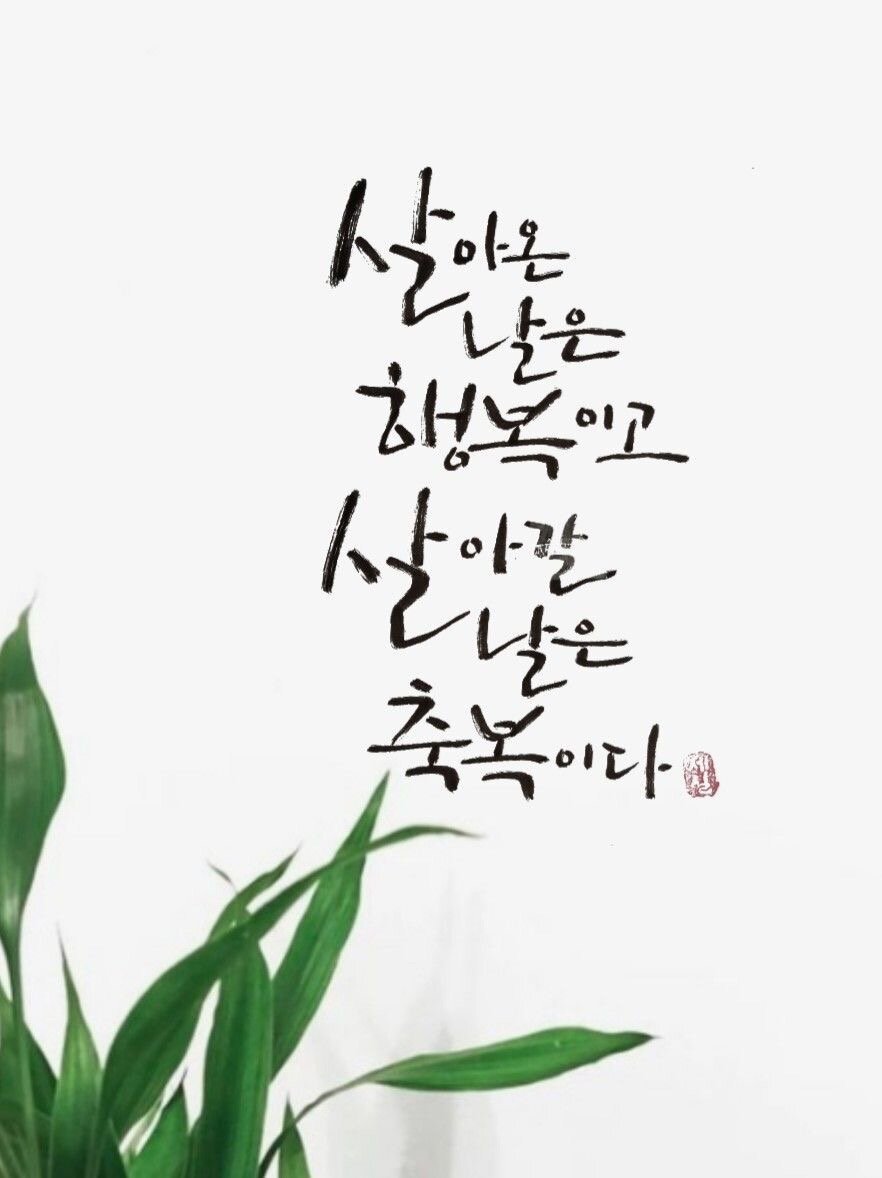 살아온
날은
행복이고
살아갈
날은
축복이다